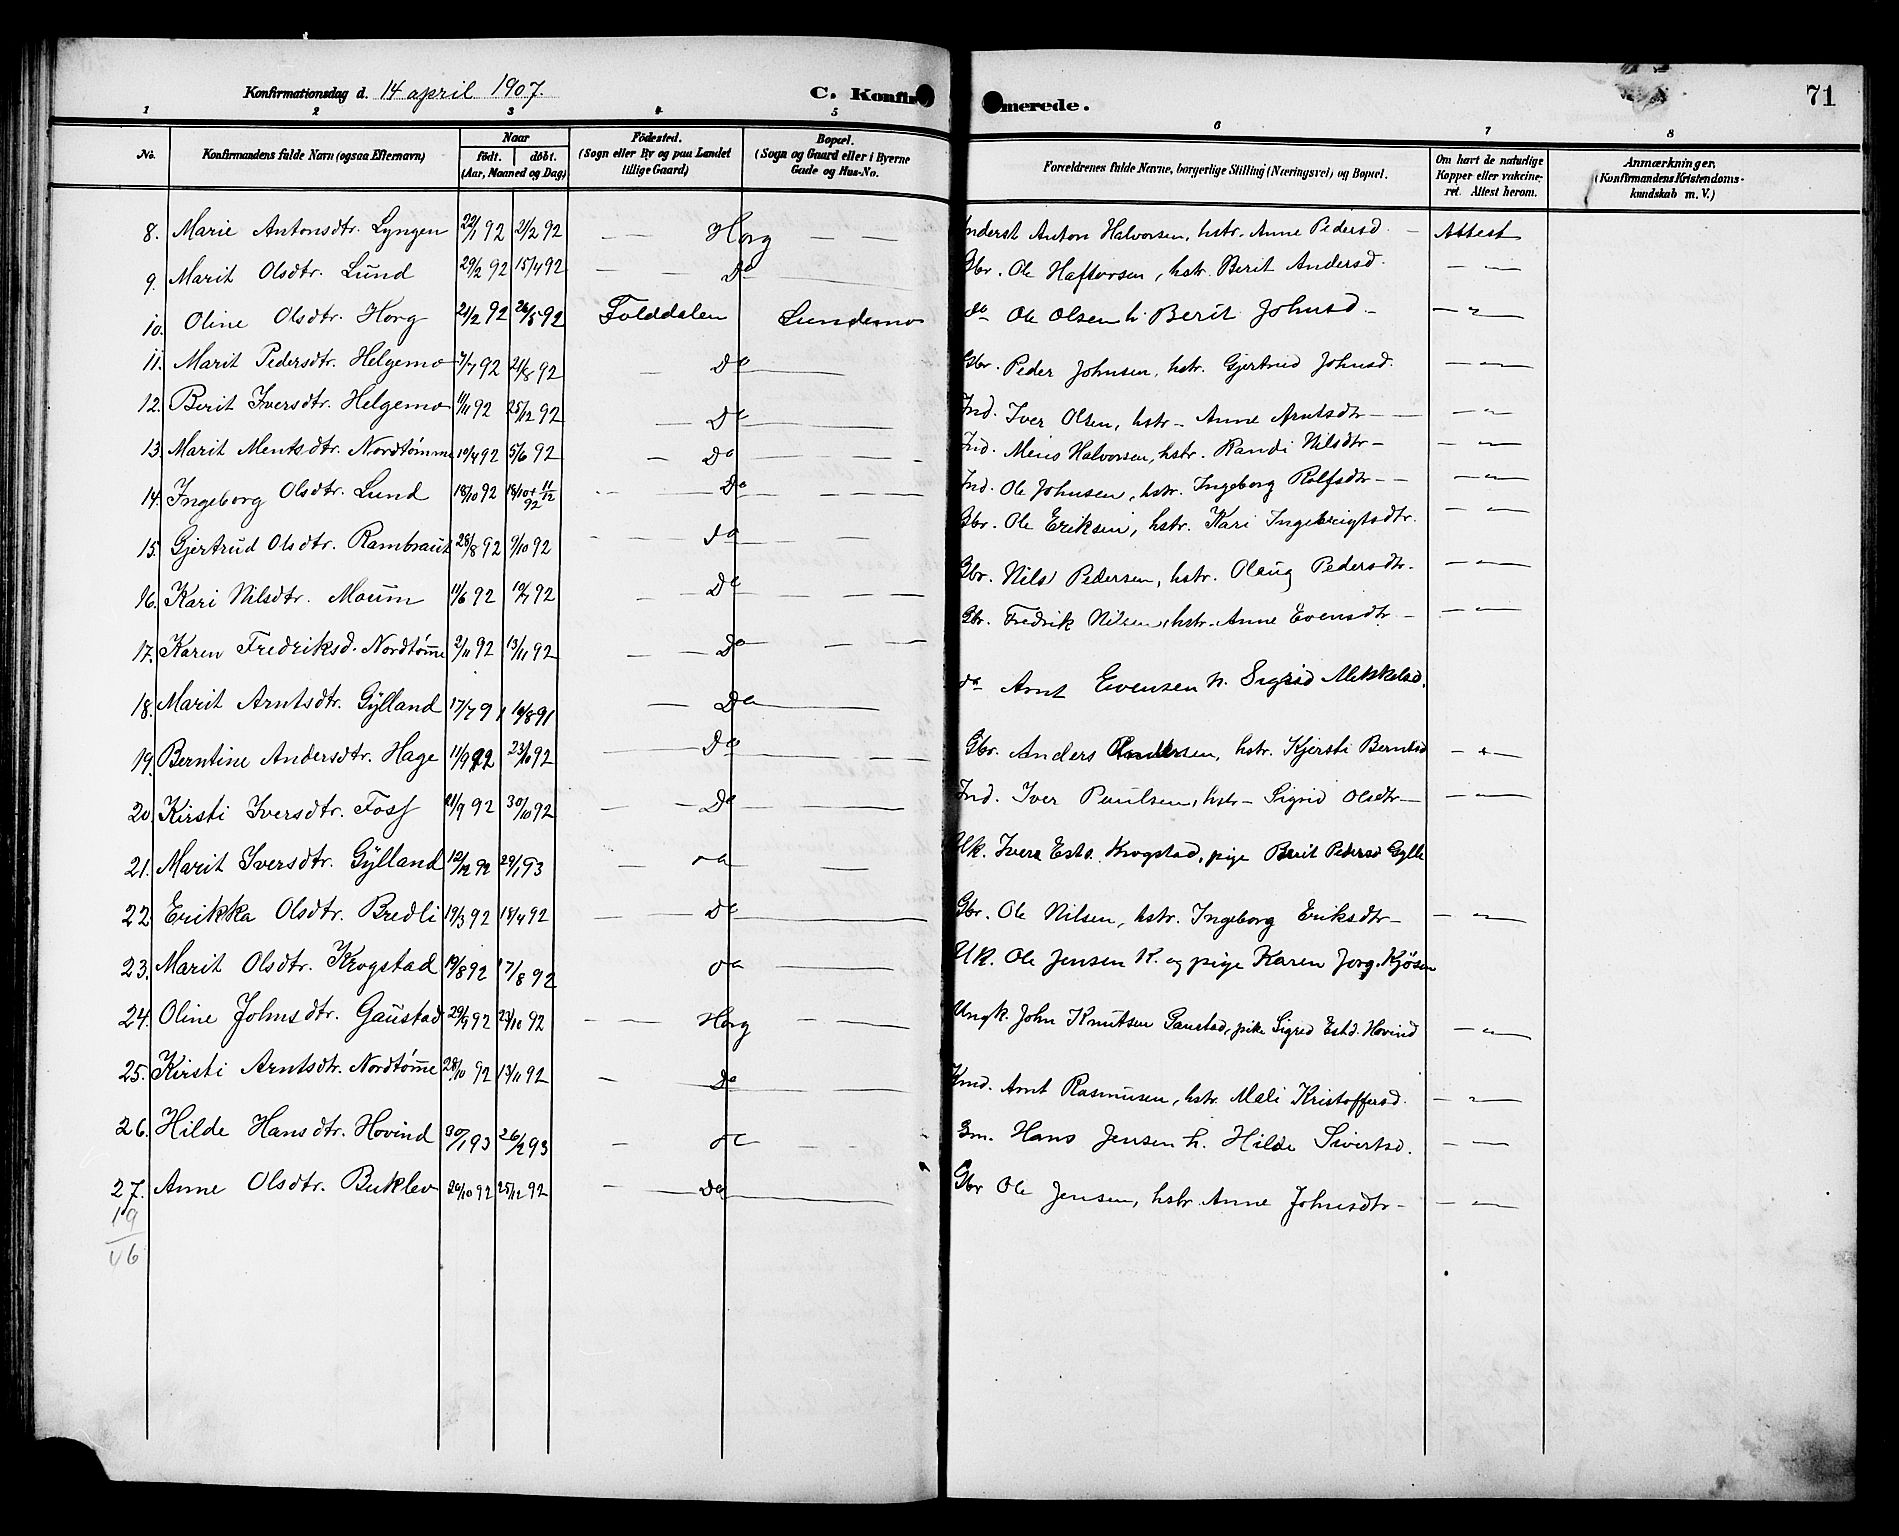 Konfirmationsdag d. 14 april 1907. C. Konfir
merede. 71
1 2 3 4 5 6 7 8
No. Konfirmandens fulde Navn (ogsaa Efternavn) Naar født. døbt. (Aar, Maaned og Dag) Fødested. (Sogn eller By og paa Landet tillige Gaard) Bopæl. (Sogn og Gaard eller i Byerne Gade og Hus-No. Forældrenes fulde Navne, borgerlige Stilling (Næringsvei) og Bopæl. Om havt de naturlige Kopper eller vakcineret. Attest herom. Anmærkninger. (Konfirmandens Kristendomskundskab m. V.)
8. Marie Antonsdtr. Lyngen 22/1 92 21/2 92 — — Horg — — Inderst Anton Halvorsen, hstr. Anne Pedersd. — Attest
9. Marit Olsdtr. Lund 29/2 92 15/4 92 — — Do — Gbr. Ole Haftorsen, hstr. Berit Andersd. — " —
10. Oline Olsdtr. Horg 21/2 92 26/5 92 Folddalen Lundemo do Ole Olsen h. Berit Johnsd — — " —
11. Marit Pedersdtr. Helgemo 7/7 92 21/8 92 — Do — Gbr. Peder Johnsen, hstr. Gjertrud Johnsd. — " —
12. Berit Iversdtr. Helgemo 11/11 92 25/12 92 — Do — Ind. Iver Olsen, hstr — Anne Arntsdtr — — — " —
13. Marit Mentsdtr. Nordtømme 10/4 92 5/6 92 — Do — Ind. Halvorsen, hstr. Randi Nilsdtr — — " —
14. Ingeborg Olsdtr. Lund 18/10 92 18/10 + 11/12 92 — — Do — Ind. Ole Johnsen, hstr. Ingeborg Rolfsdtr — — — " —
15. Gjertrud Olsdtr. Rambraut 28/8 92 9/10 92 — — do — Gbr. Ole Eriksen, hstr. Kari Ingebrigtsdtr. — " —
16. Kari Nilsdtr. Moum 11/6 92 10/7 92 — — Do — Gbr. Nils Pedersen, hstr. Olaug Pedersdtr. — " —
17. Karen Fredriksd. Nordtømme 2/11 92 13/11 92 — — Do — Gbr. Fredrik Nilsen, hstr. Anne Evensdtr — — " —
18. Marit Arntsdtr. Gylland 17/7 91 16/8 91 — Do — do Arnt Evensen h. Sigrid Mikkelsd.
19. Berntine Andersdtr. Hage 11/9 92 23/10 92 — Do — Gbr. Anders Andersen, hstr. Kjersti Berntsd — " —
20. Kirsti Iversdtr. Foss 21/9 92 30/10 92 — — Do — Ind. Iver Paulsen, hstr — Sigrid Olsdtr — — " —
21. Marit Iversdtr. Gylland 12/12 92 29/1 93 — do — Uk. Iver Ests. Krogstad, pige Berit Pedersd Gylle
22. Erikka Olsdtr. Bredli 19/3 92 18/4 92 — Do — Gbr. Ole Nilsen, hstr. Ingeborg Eriksdtr — — " —
23. Marit Olsdtr. Krogstad 19/8 92 17/8 92 do — Uk. Ole Jensen K. og pige Karen Jorg. Kjøsen
24. Oline Johnsdtr. Gaustad 29/9 92 23/10 92 — — Horg — — Ungk. John Knutsen Gaustad, pike Sigrid Estd. Hovind — " —
25. Kirsti Arntsdtr. Nordtømme 28/10 92 13/11 92 — Do — Arnt Rasmusen, hstr. Mali Kristoffersd. — " —
26. Hilde Hansdtr. Hovind 30/1 93 26/2 93 — do — Gm. Hans Jensen h. Hilde Sivertsd. — —
27. Anne Olsdtr. Buklev 26/10 92 25/12 92 — Do — Gbr Ole Jensen, hstr Anne Johnsdtr — — " —
19
46